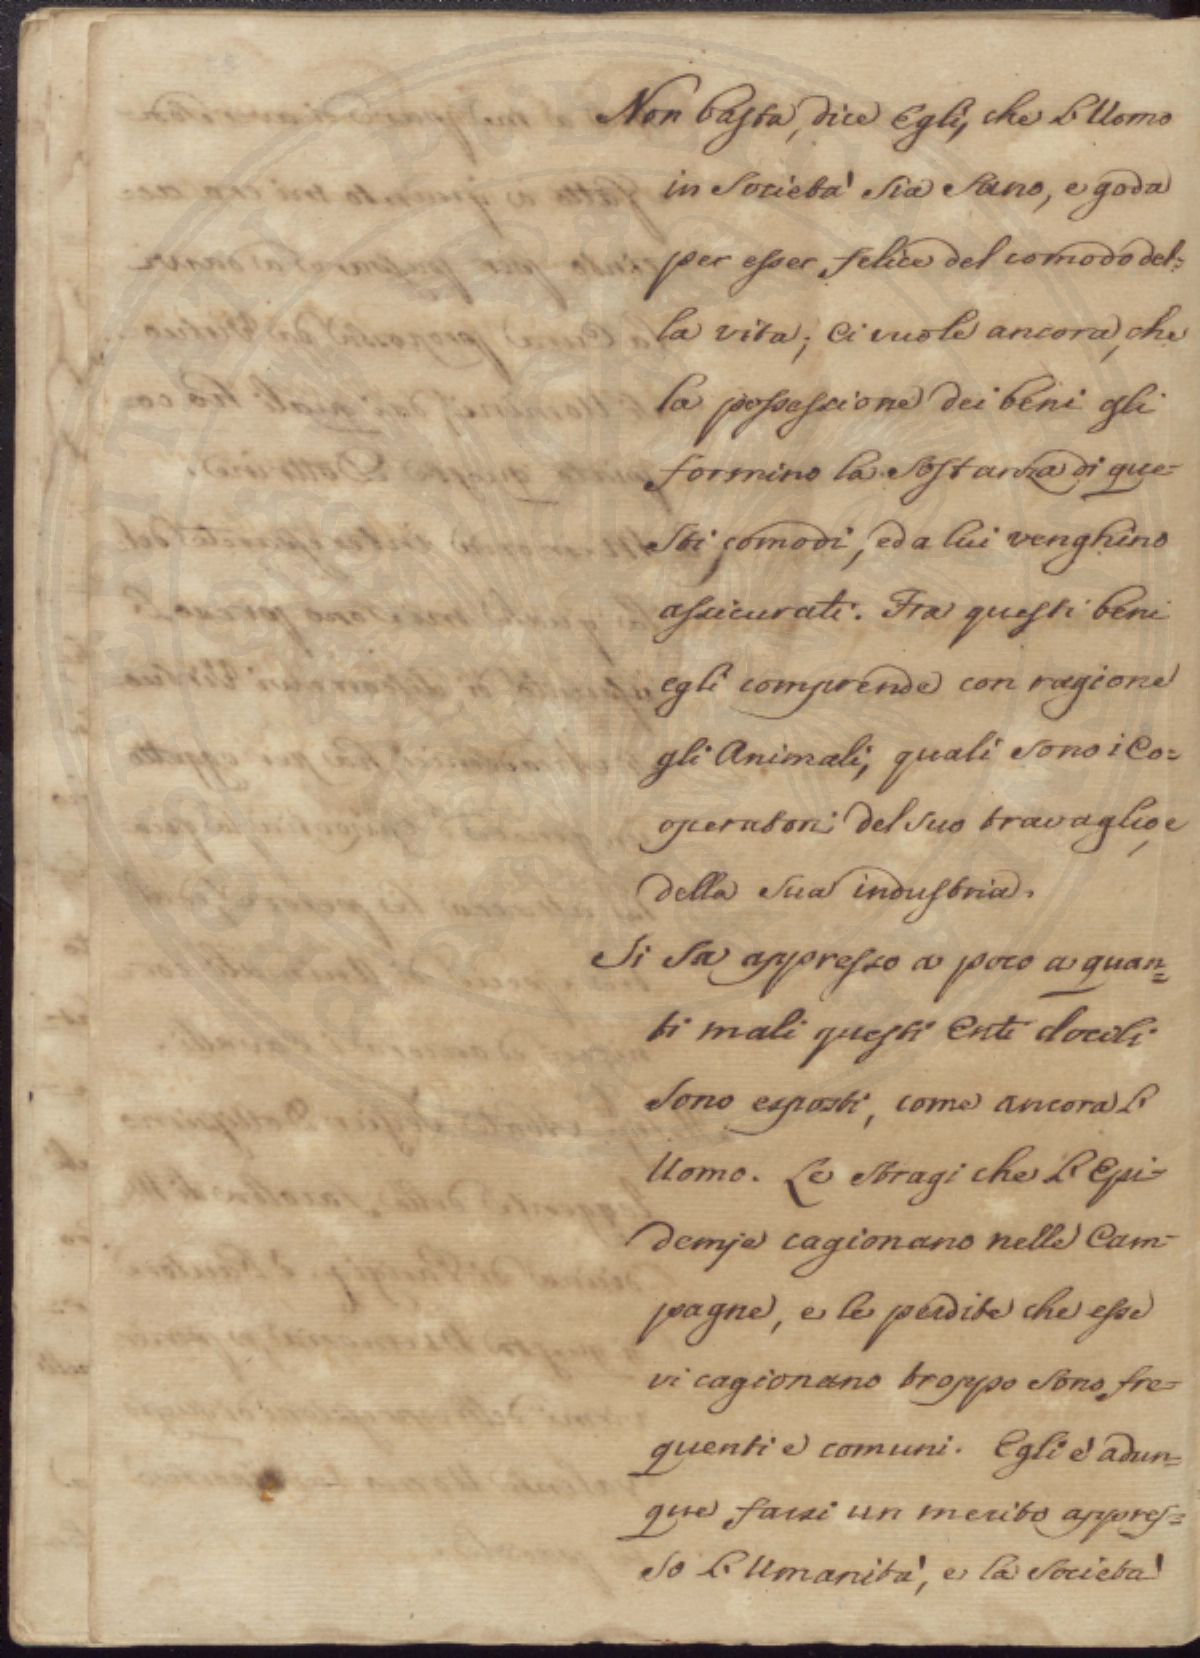 Non basta, dice Egli, che L'Uomo
in Società sia sano, e goda
per esser felice del comodo del=
la vita; Ci vuole ancora, che
la possessione dei beni gli
formino la sostanza di que=
sti comodi, ed a lui venghino
assicurati. Fra questi beni
egli comprende con ragione
gli Animali, quali sono i Co=
operatori del suo travaglio, e
della sua industria.
Si sa appresso a poco a quan=
ti mali questi Enti docili
sono esposti, come ancora L'
Uomo. Le stragi che L'Epi=
demje cagionano nelle Cam=
pagne, e le perdite che esse
vi cagionano troppo sono fre=
quenti e comuni. Egli è adun=
que farsi un merito appres=
so L'Umanità, e la Società